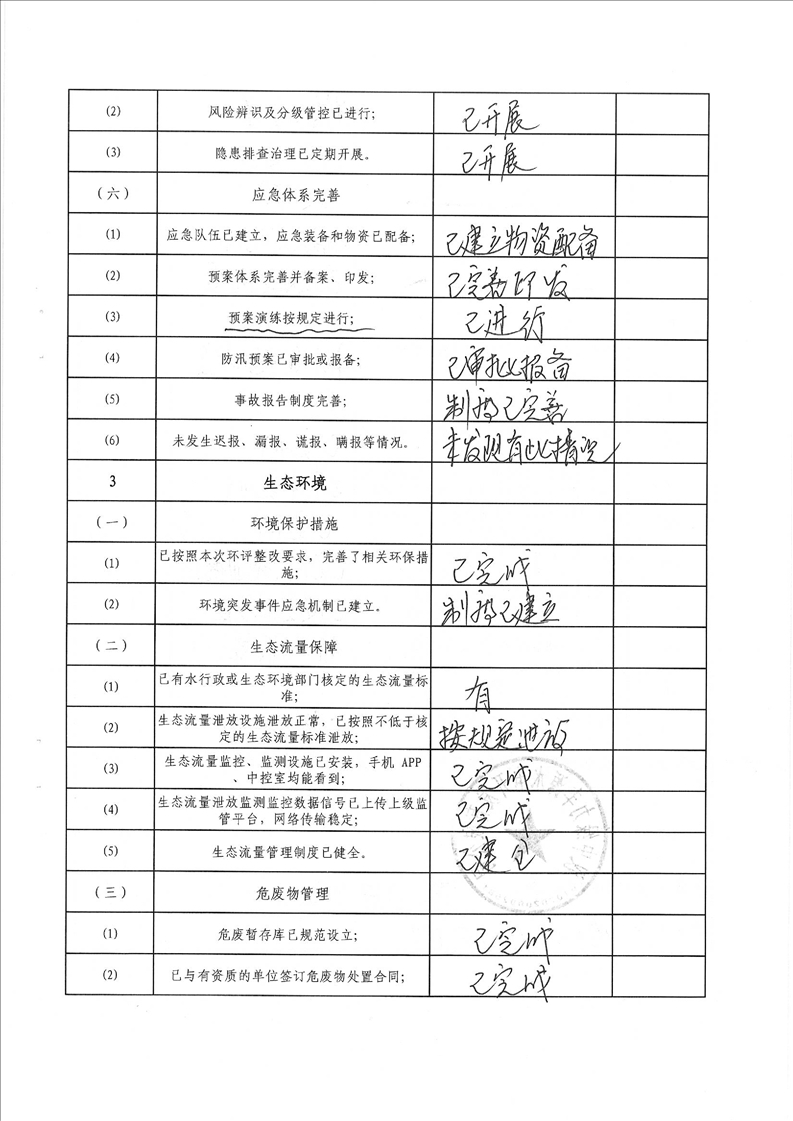 (2) 风险辨识及分级管控已进行; 已开展
(3) 隐患排查治理已定期开展。 已开展
(六) 应急体系完善
(1) 应急队伍已建立, 应急装备和物资已配备; 已建立物资配备
(2) 预案体系完善并备案、印发; 已完善印发
(3) 预案演练按规定进行; 已进行
(4) 防汛预案已审批或报备; 已审批报备
(5) 事故报告制度完善; 制度已完善
(6) 未发生迟报、漏报、谎报、瞒报等情况。 未发现有此情况
3 生态环境
(一) 环境保护措施
(1) 已按照本次环评整改要求, 完善了相关环保措
施; 已完成
(2) 环境突发事件应急机制已建立。 制度已建立
(二) 生态流量保障
(1) 已有水行政或生态环境部门核定的生态流量标
准; 有
(2) 生态流量泄放设施泄放正常, 已按照不低于核
定的生态流量标准泄放; 按规定泄放
(3) 生态流量监控、监测设施已安装, 手机 APP
、中控室均能看到; 已完成
(4) 生态流量泄放监测监控数据信号已上传上级监
管平台, 网络传输稳定; 已完成
(5) 生态流量管理制度已健全。 已建全
(三) 危废物管理
(1) 危废暂存库已规范设立; 已完成
(2) 已与有资质的单位签订危废物处置合同; 已完成